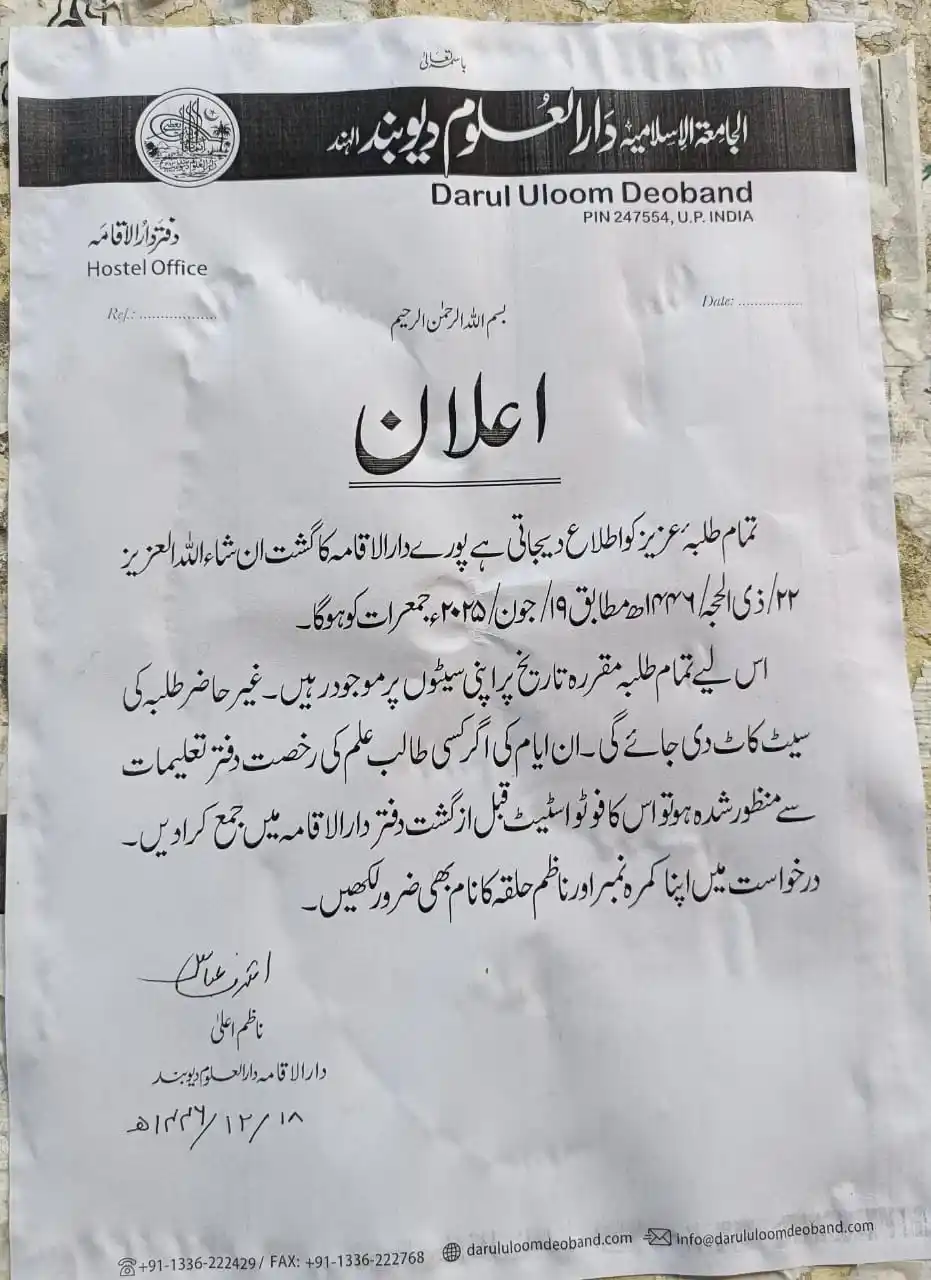 باسمہ تعالیٰ
الجامعۃ الاسلامیۃ دارالعلوم دیوبند الہند
Darul Uloom Deoband
PIN 247554, U.P. INDIA
دفتر دارالاقامہ
Hostel Office
Ref.: ..................
Date: ...............
بسم اللہ الرحمٰن الرحیم
اعلان
تمام طلبۂ عزیز کو اطلاع دیجاتی ہے پورے دارالاقامہ کا گشت ان شاء اللہ العزیز
۲۲/ذی الحجہ/۱۴۴۶ھ مطابق ۱۹/جون/۲۰۲۵ء جمعرات کو ہوگا۔
اس لیے تمام طلبہ مقررہ تاریخ پر اپنی سیٹوں پر موجود رہیں۔ غیر حاضر طلبہ کی
سیٹ کاٹ دی جائے گی۔ ان ایام کی اگر کسی طالب علم کی رخصت دفتر تعلیمات
سے منظور شدہ ہو تو اس کا فوٹو اسٹیٹ قبل از گشت دفتر دارالاقامہ میں جمع کرادیں۔
درخواست میں اپنا کمرہ نمبر اور ناظم حلقہ کا نام بھی ضرور لکھیں۔
اشرف عباس
ناظم اعلیٰ
دارالاقامہ دارالعلوم دیوبند
۱۸/۱۲/۱۴۴۶ھ
+91-1336-222429 / FAX: +91-1336-222768 darululoomdeoband.com info@darululoomdeoband.com